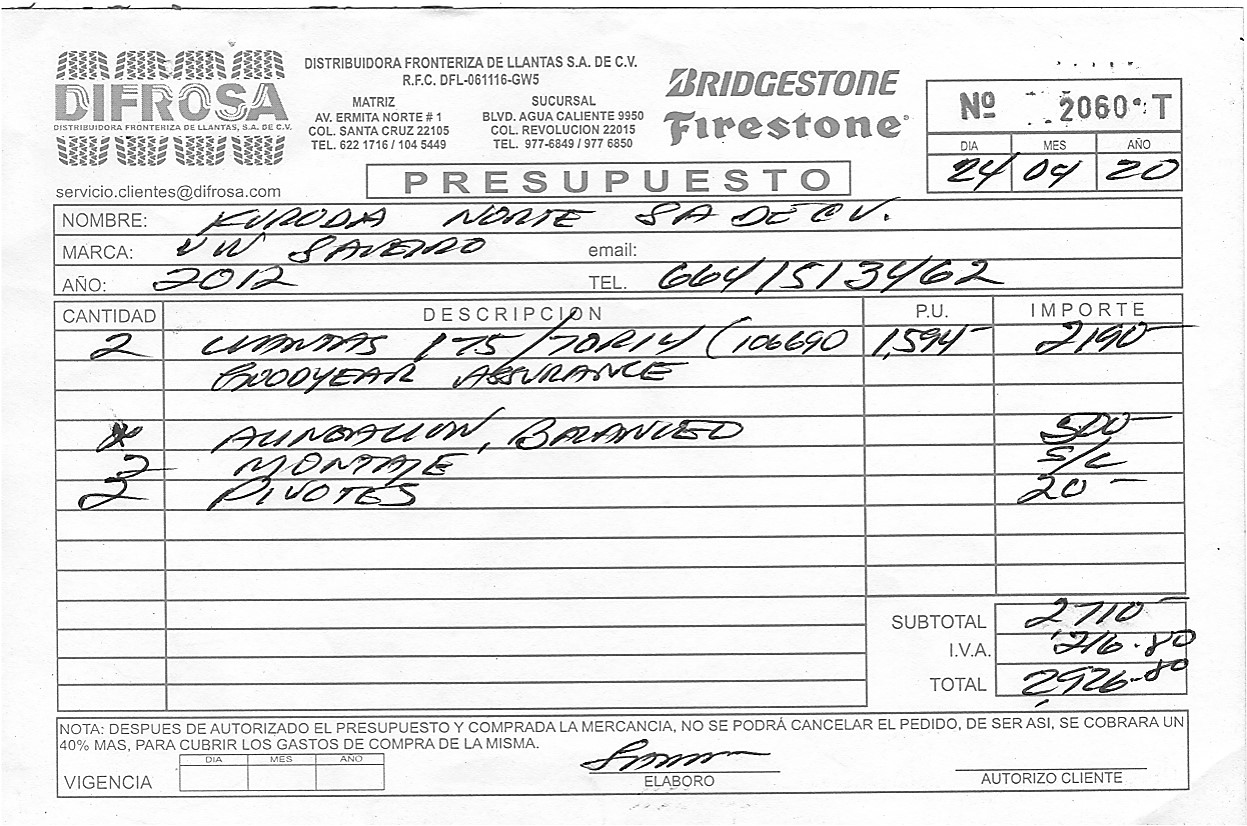 DIFROSA
DISTRIBUIDORA FRONTERIZA DE LLANTAS, S.A. DE C.V.
servicio.clientes@difrosa.com
DISTRIBUIDORA FRONTERIZA DE LLANTAS S.A. DE C.V.
R.F.C. DFL-061116-GW5
MATRIZ
AV. ERMITA NORTE # 1
COL. SANTA CRUZ 22105
TEL. 622 1716 / 104 5449
SUCURSAL
BLVD. AGUA CALIENTE 9950
COL. REVOLUCION 22015
TEL. 977-6849 / 977 6850
BRIDGESTONE
Firestone
Nº 2060 T
DIA MES AÑO
24 04 20
PRESUPUESTO
NOMBRE: KURODA NORTE SA DE CV.
MARCA: VW SAVEIRO email:
AÑO: 2012 TEL. 6641513462
CANTIDAD DESCRIPCION P.U. IMPORTE
2 LLANTAS 175/70R14 (106690 1,594- 2190-
GOODYEAR ASSURANCE
BALANCEO 500-
2 MONTAJE S/C
2 PIVOTES 20-
SUBTOTAL 2710-
I.V.A. 216.80
TOTAL 2,926.80
NOTA: DESPUES DE AUTORIZADO EL PRESUPUESTO Y COMPRADA LA MERCANCIA, NO SE PODRÁ CANCELAR EL PEDIDO, DE SER ASI, SE COBRARA UN
40% MAS, PARA CUBRIR LOS GASTOS DE COMPRA DE LA MISMA.
DIA MES AÑO
VIGENCIA
ELABORO
AUTORIZO CLIENTE